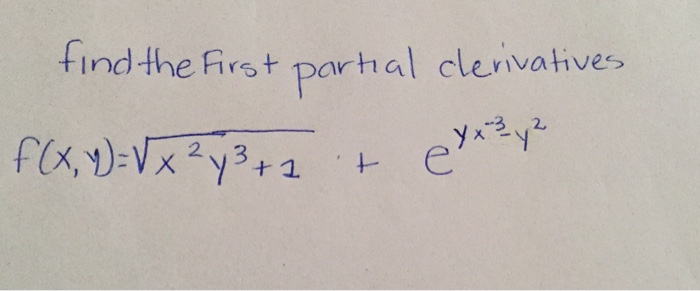 find the First partial derivatives
f(x,y)=√x²y³+1 + e^yx⁻³-y²